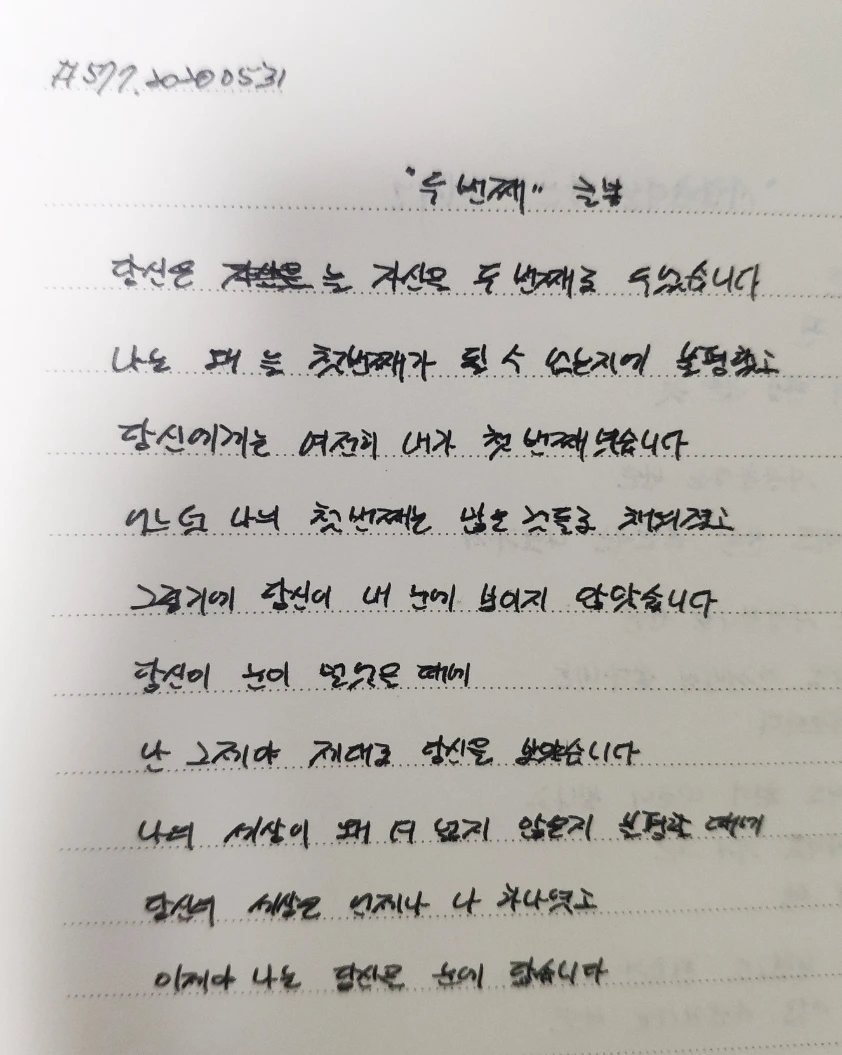 #577.20200531
"두 번째" 글봄
당신은 늘 자신을 두 번째로 두었습니다
나는 왜 늘 첫번째가 될 수 없는지에 불평했고
당신에게는 여전히 내가 첫 번째였습니다
어느덧 나의 첫번째는 많은 것들로 채워졌고
그렇기에 당신이 내 눈에 보이지 않았습니다
당신이 눈이 멀었을 때에
난 그제야 제대로 당신을 보았습니다
나의 세상이 왜 더 넓지 않은지 불평할 때에
당신의 세상은 언제나 나 하나였고
이제야 나는 당신을 눈에 담습니다